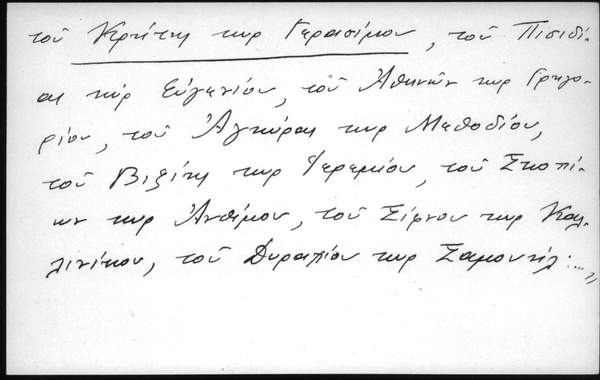 τοῦ Κρήτης κυρ Γερασίμου, τοῦ Πισιδί-
ας κυρ Εὐγενίου, τοῦ Ἀθηνῶν κυρ Γρηγο-
ρίου, τοῦ Ἀγκύρας κυρ Μεθοδίου,
τοῦ Βιζύης κυρ Ἱερεμίου, τοῦ Σκοπί-
ων κυρ Ἀνθίμου, τοῦ Σίφνου κυρ Καλ-
λινίκου, τοῦ κυρ Σαμουήλ....»